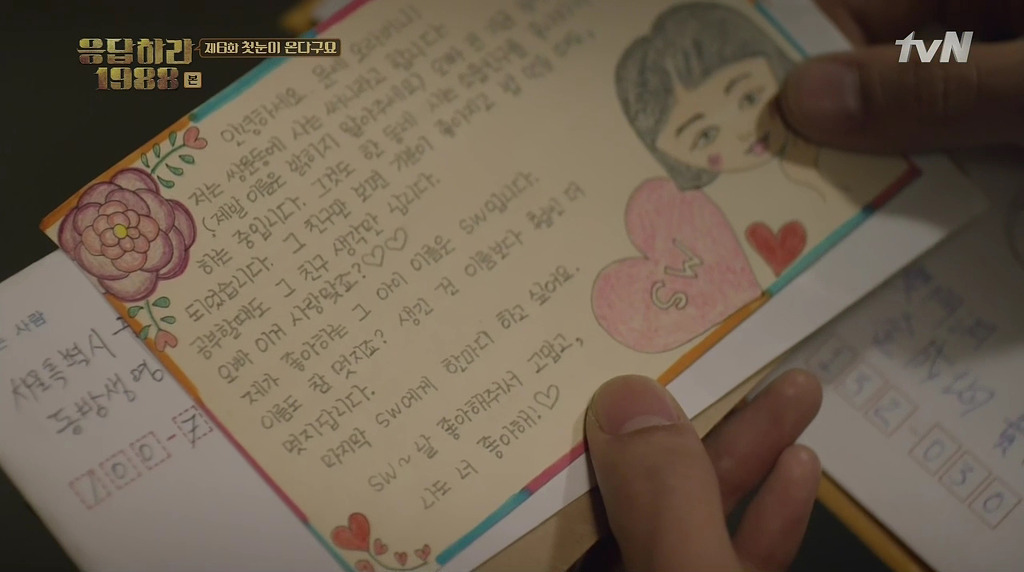 응답하라
1988 본
제6화 첫눈이 온다구요
tvN
안녕하세요
저는 쌍문동에 사는 써니라고 합니다.
(제발 이름은 밝히지 말아주세요)
하는 중입니다. 그것도 한 동네 사는
되었습니다. 그 친구만 보면 기분이 좋아지고
공부할때도 그 친구 생각만 납니다.
오빠 이거 사랑맞죠?♡♡
제가 좋아하는 그 아이 이름은 SW입니다.
이름도 참 멋지죠? 생긴 건 이름보다 훨씬 더
멋지답니다.
마지막 SW에게 한마디 하고 싶어요.
SW~ 날 좋아해줘서 고맙고,
나도 너 좋아해!♡
MS
사람
서울특별시
동방생명
100-7
152-030